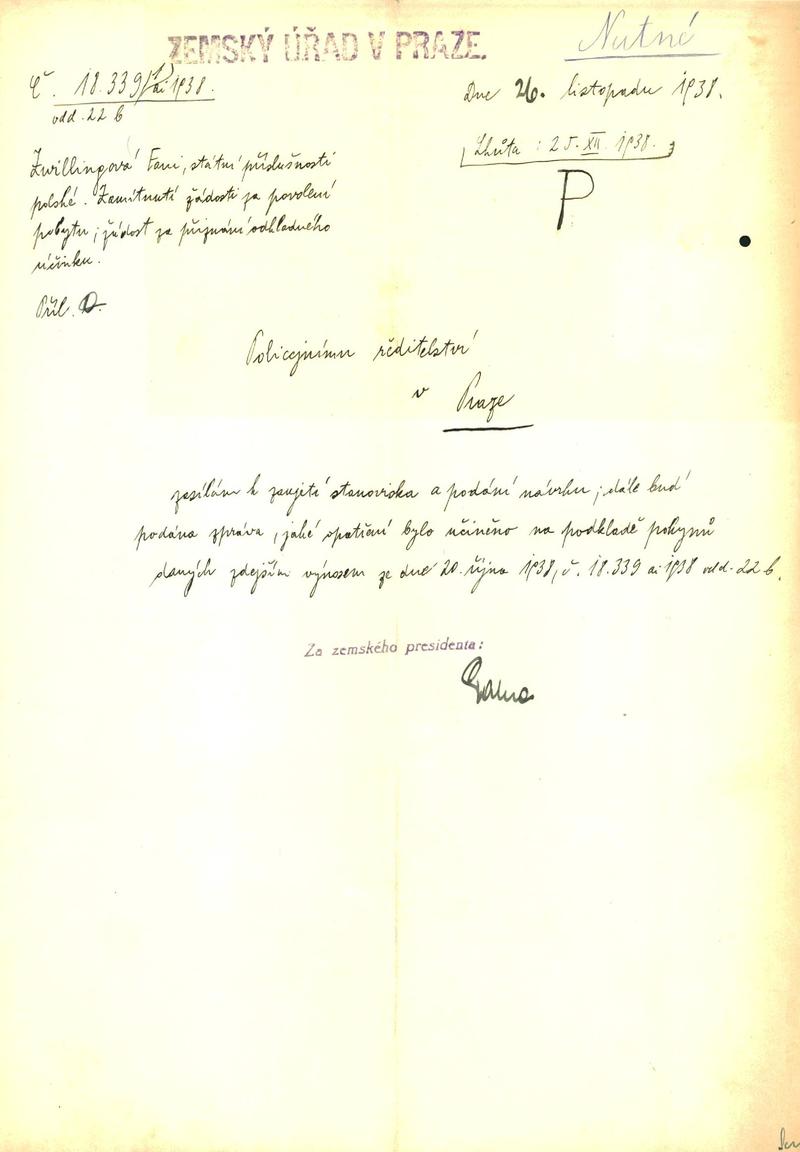 ZEMSKÝ ÚŘAD V PRAZE.
Nutné
Č. 18.339/ai 1938.
odd. 22 b
Dne 26. listopadu 1938.
Lhůta : 25. XII. 1938.
P
Zwillingová Fani, státní příslušností
polské. Zamítnutí žádosti za povolení
pobytu ; žádost za přiznání odkladného
účinku.
Příl. 0.
Policejnímu ředitelství
v Praze
zasílám k zaujetí stanoviska a podání návrhu ; dále buď
podána zpráva, jaké opatření bylo učiněno na podkladě pokynů
daných zdejším výnosem ze dne 20. října 1938, č. 18.339 ai 1938 odd. 22 b.
Za zemského presidenta: